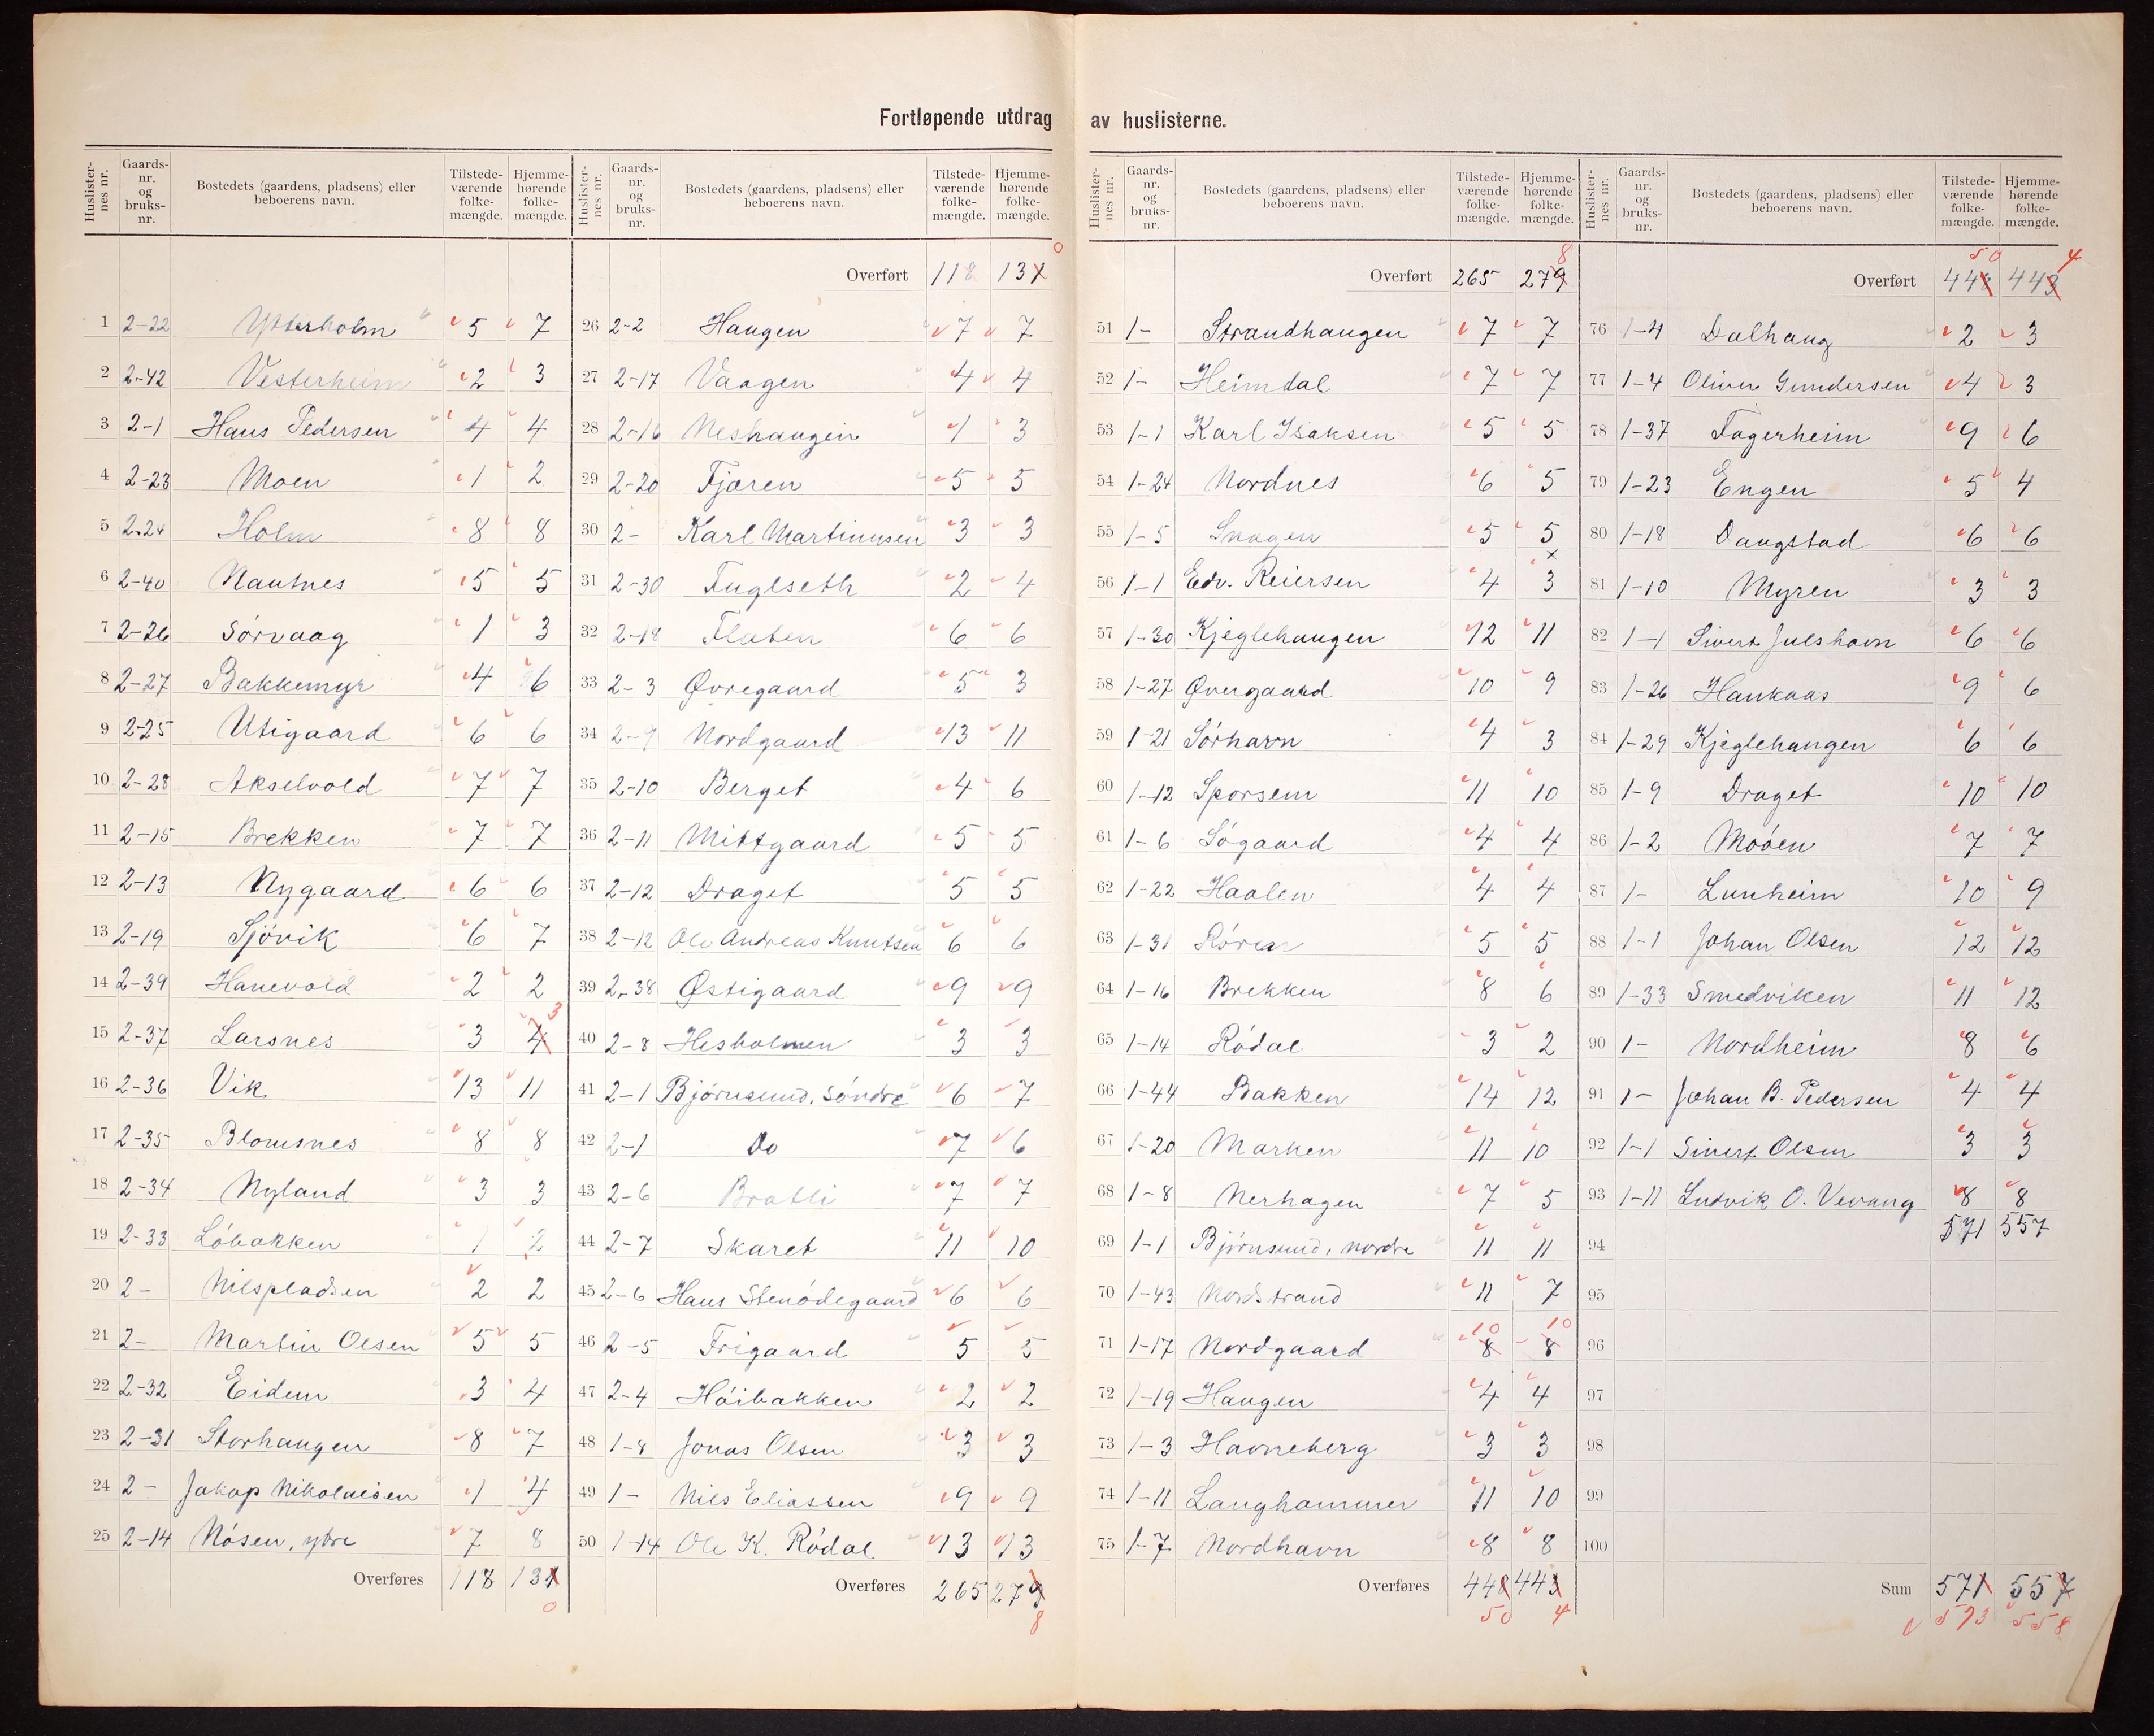 Fortløpende utdrag av huslisterne.
Huslisternes nr. | Gaardsnr. og bruksnr. | Bostedets (gaardens, pladsens) eller beboerens navn. | Tilstedeværende folkemængde. | Hjemmehørende folkemængde.
1 2-22 Ytterholm 5 7
2 2-42 Vesterheim 2 3
3 2-1 Hans Pedersen 4 4
4 2-23 Moen 1 2
5 2-24 Holm 8 8
6 2-40 Nautnes 5 5
7 2-26 Sørvaag 1 3
8 2-27 Bakkemyr 4 6
9 2-25 Utigaard 6 6
10 2-28 Akselvold 7 7
11 2-15 Brekken 7 7
12 2-13 Nygaard 6 6
13 2-19 Sjövik 6 7
14 2-39 Hanevold 2 2
15 2-37 Larsnes 3 4 3
16 2-36 Vik 13 11
17 2-35 Blomsnes 8 8
18 2-34 Nyland 3 3
19 2-33 Löbakken 1 2
20 2- Nilspladsen 2 2
21 2- Martin Olsen 5 5
22 2-32 Eidem 3 4
23 2-31 Storhaugen 8 7
24 2- Jakop Nikolaisen 1 4
25 2-14 Nósen, ytre 7 8
Overføres 118 131 0
Huslisternes nr. | Gaardsnr. og bruksnr. | Bostedets (gaardens, pladsens) eller beboerens navn. | Tilstedeværende folkemængde. | Hjemmehørende folkemængde.
Overført 118 131 0
26 2-2 Haugen 7 7
27 2-17 Vaagen 4 4
28 2-16 Neshaugen 1 3
29 2-20 Fjæren 5 5
30 2- Karl Martinusen 3 3
31 2-30 Fuglseth 2 4
32 2-18 Flaten 6 6
33 2-3 Øvregaard 5 3
34 2-9 Nordgaard 13 11
35 2-10 Berget 4 6
36 2-11 Mittgaard 5 5
37 2-12 Draget 5 5
38 2-12 Ole Andreas Knutsen 6 6
39 2-38 Østigaard 9 9
40 2-8 Hesholmen 3 3
41 2-1 Bjørnsund, Söndre 6 7
42 2-1 Do 7 6
43 2-6 Bratli 7 7
44 2-7 Skaret 11 10
45 2-6 Hans Stenödegaard 6 6
46 2-5 Frigaard 5 5
47 2-4 Höibakken 2 2
48 1-8 Jonas Olsen 3 3
49 1- Nils Eliassen 9 9
50 1-14 Ole K. Rödal 13 13
Overføres 265 279 8
Huslisternes nr. | Gaardsnr. og bruksnr. | Bostedets (gaardens, pladsens) eller beboerens navn. | Tilstedeværende folkemængde. | Hjemmehørende folkemængde.
Overført 265 279 8
51 1- Strandhaugen 7 7
52 1- Heimdal 7 7
53 1-1 Karl Isaksen 5 5
54 1-24 Nordnes 6 5
55 1-5 5 5
56 1-1 Edv. Reiersen 4 3 x
57 1-30 Kjeglehaugen 12 11
58 1-27 Øvergaard 10 9
59 1-21 Sørhavn 4 3
60 1-12 Sporsem 11 10
61 1-6 Sögaard 4 4
62 1-22 Haalen 4 4
63 1-31 5 5
64 1-16 Brekken 8 6
65 1-14 Rödal 3 2
66 1-44 Bakken 14 12
67 1-20 Marken 11 10
68 1-8 Nerhagen 7 5
69 1-1 Bjørnsund, nordre 11 11
70 1-43 Nordstrand 11 7
71 1-17 Nordgaard 8 10 8 10
72 1-19 Haugen 4 4
73 1-3 Havneberg 3 3
74 1-11 Langhammer 11 10
75 1-7 Nordhavn 8 8
Overføres 448 50 443 4
Huslisternes nr. | Gaardsnr. og bruksnr. | Bostedets (gaardens, pladsens) eller beboerens navn. | Tilstedeværende folkemængde. | Hjemmehørende folkemængde.
Overført 448 50 443 4
76 1-4 Dalhaug 2 3
77 1-4 Oliver Gundersen 4 3
78 1-37 Fagerheim 9 6
79 1-23 Engen 5 4
80 1-18 Daugstad 6 6
81 1-10 Myren 3 3
82 1-1 Sivert Julshavn 6 6
83 1-26 Haukaas 9 6
84 1-29 Kjeglehaugen 6 6
85 1-9 Draget 10 10
86 1-2 Moöen 7 7
87 1- Lunheim 10 9
88 1-1 Johan Olsen 12 12
89 1-33 Smedviken 11 12
90 1- Nordheim 8 6
91 1- Johan B. Pedersen 4 4
92 1-1 Sivert Olsen 3 3
93 1-11 Ludvik O. Vevang 8 8
571 557
94
95
96
97
98
99
100
Sum 571 557
573 558